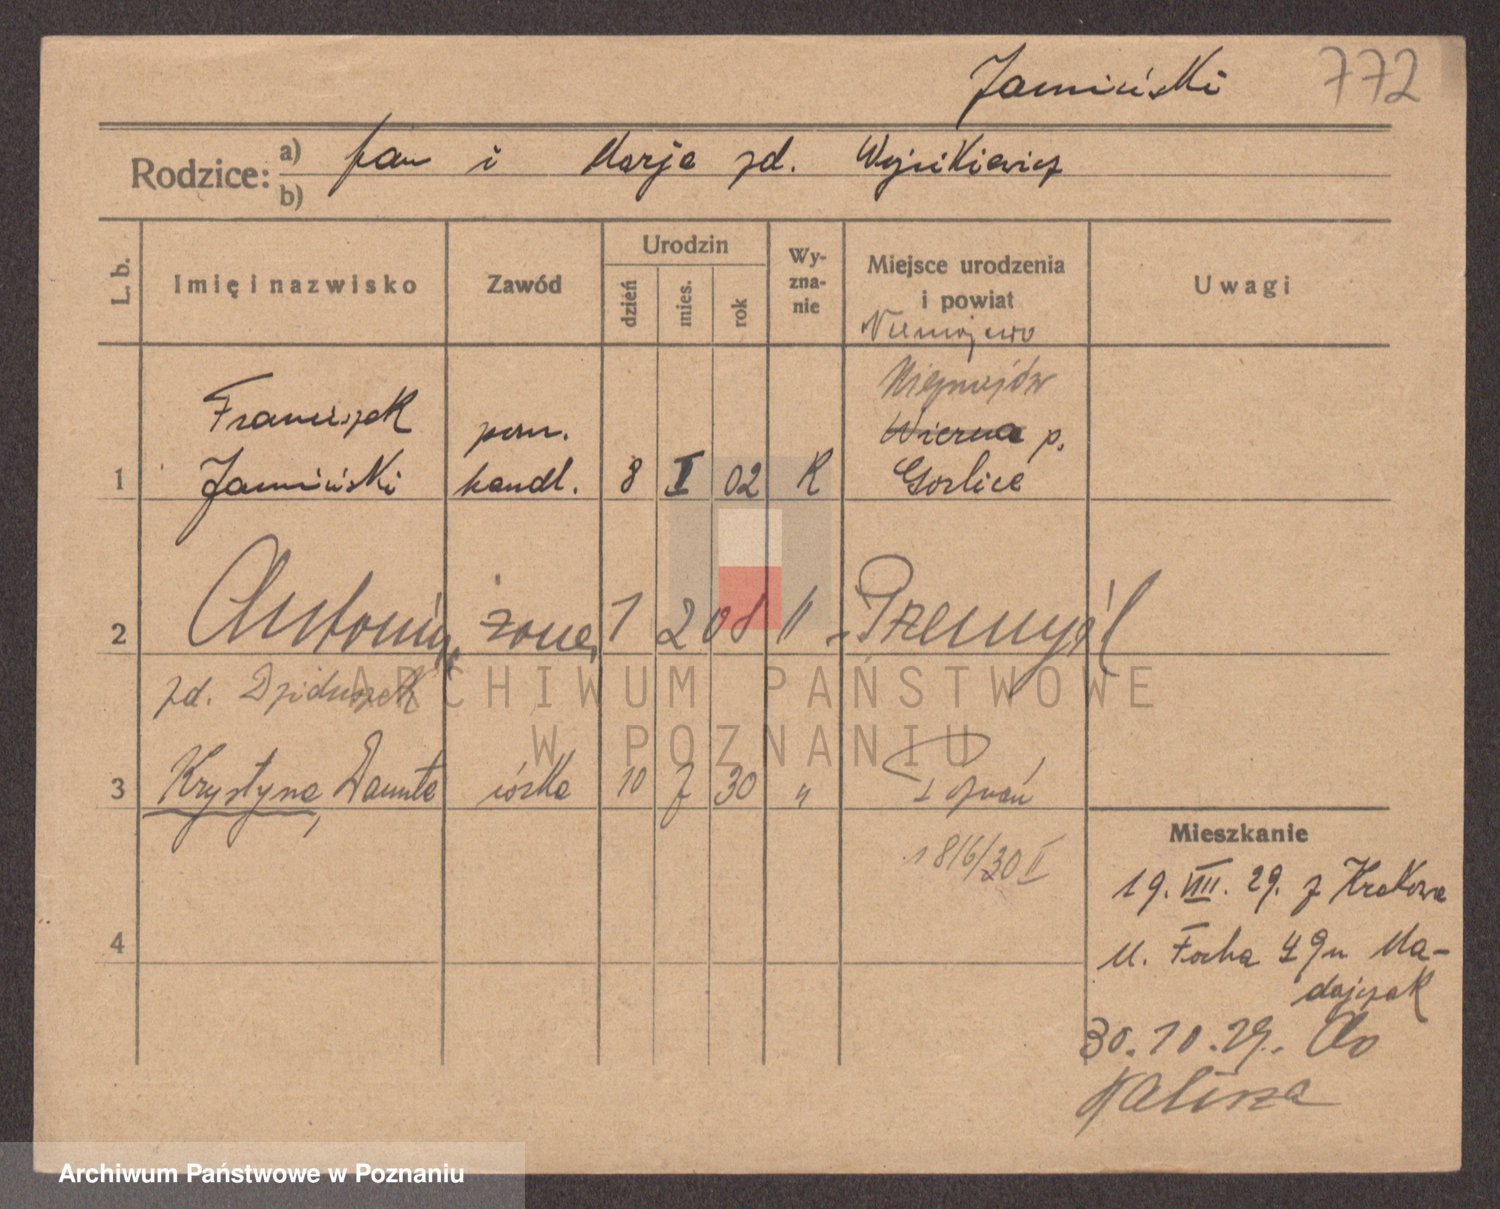 Jamiński 772
Rodzice: a) Jan i Marja zd. Wojcikiewicz
b)
L. b. Imię i nazwisko Zawód Urodzin dzień mies. rok Wyznanie Miejsce urodzenia i powiat Uwagi
Niemojewo
Franciszek pom.
Wierna p.
1 Jamiński handl. 8 I 02 R Gorlice
2 Antonina żona 1 2 08 " Przemyśl
zd. Dziduszek
3 Krystyna, Danuta córka 10 7 30 " Poznań
18/6/30 II
4
Mieszkanie
19. VIII. 29. z Krakowa
M. Focha 49 Ma-
dajczak
30. 10. 29. do
Kalisza
ARCHIWUM PAŃSTWOWE
W POZNANIU
Archiwum Państwowe w Poznaniu